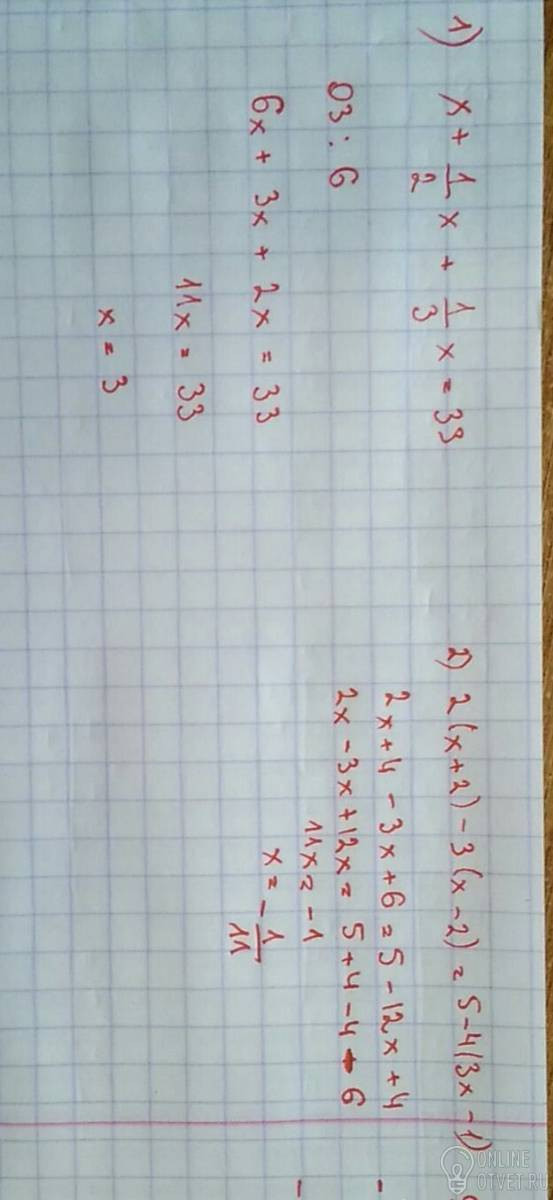 1) x + 1/2 x + 1/3 x = 33
03 : 6
6x + 3x + 2x = 33
11x = 33
x = 3
2) 2(x+2) - 3(x-2) = 5 - 4(3x - 1)
2x + 4 - 3x + 6 = 5 - 12x + 4
2x - 3x + 12x = 5 + 4 - 4 - 6
11x = -1
x = - 1/11
ONLINE
OTVET.RU